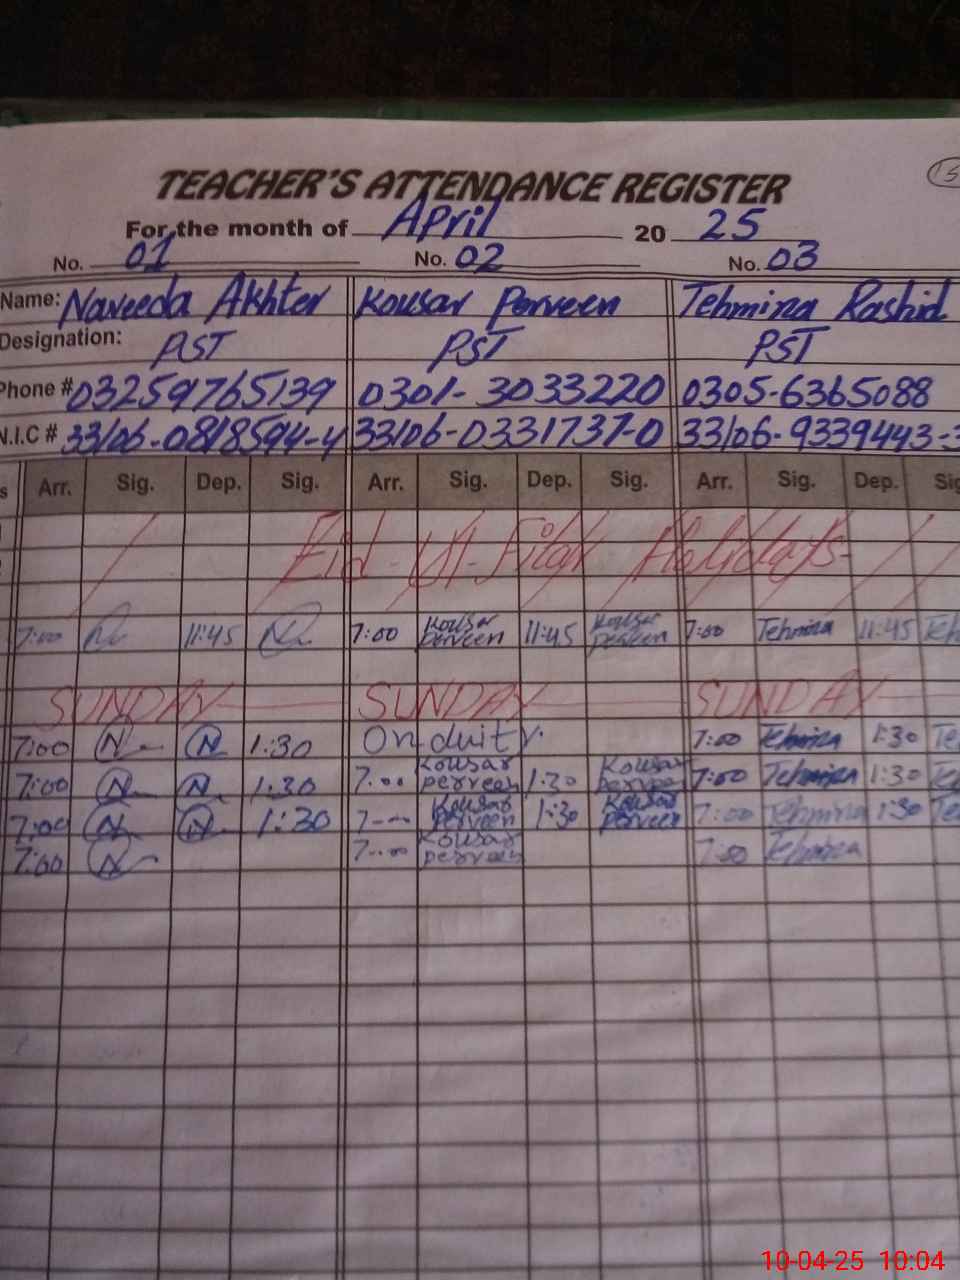 TEACHER'S ATTENDANCE REGISTER
For the month of April 20 25
No. 01 No. 02 No. 03
Name: Naveeda Akhter Kousar Perveen Tehmina Rashid
Designation: PST PST PST
Phone # 03259765139 0301-3033220 0305-6365088
N.I.C # 33106-0818594-4 33106-0331737-0 33106-9339443-3
Arr. Sig. Dep. Sig. Arr. Sig. Dep. Sig. Arr. Sig. Dep. Sig
Eid-Ul-Fitar Holidays
7:00 N 11:45 N 7:00 Kousar perveen 11:45 Kousar perveen 7:00 Tehmina 11:45 Teh
SUNDAY SUNDAY SUNDAY
7:00 N N 1:30 On duity. 7:00 Tehmina 1:30 Te
7:00 N N 1:30 7:00 Kousar perveen 1:30 Kousar perveen 7:00 Tehmina 1:30 Te
7:00 N N 1:30 7-- Kousar Perveen 1:30 Kousar Perveen 7:00 Tehmina 1:30 Te
7:00 N 7:00 Kousar perveen 7:00 Tehmina
10-04-25 10:04